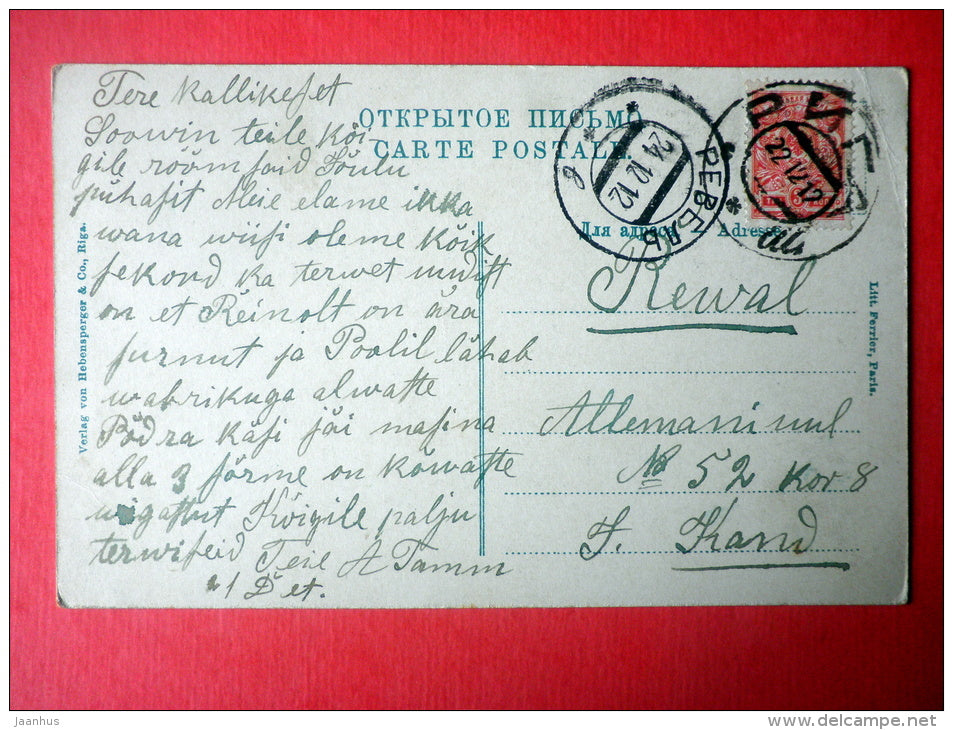 Tere Kallikesset
Soowin teile kõi
gile rõõmsaid Jõulu
pühasit Meie elame ikka
wana wiisi oleme kõik
sekord ka terwet uudist
on et Reinolt on ära
surnut ja Poolil lähab
wabrikuga alwaste
Põdra käsi jäi masina
alla 3 sõrme on kõwaste
wigastut Kõigile palju
terwiseid Teie A Tamm
ОТКРЫТОЕ ПИСЬМО
CARTE POSTALE
Для адреса Adresse
РЕВЕЛЬ
24.12.12
РИГ
22.12.12
Rewal
Allemani uul
№ 52 Kor 8
J. Kand
Verlag von Hebensperger & Co., Riga.
Litt. Ferrier, Paris.
Jaanhus
www.delcampe.net